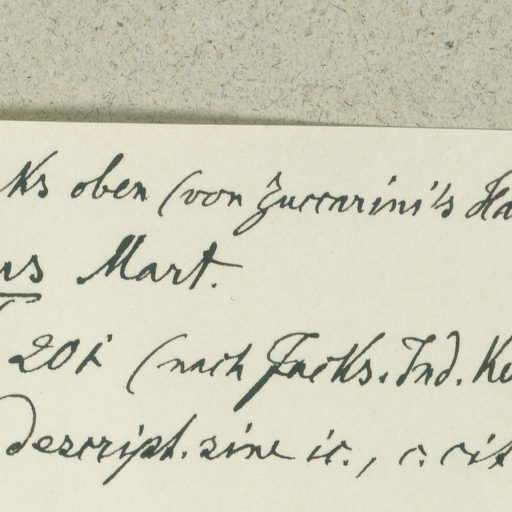 ks oben (von Zuccarini's Ha
us Mart.
201 (nach Jacks. Ind. Ke
descript. sine ic., c. cit